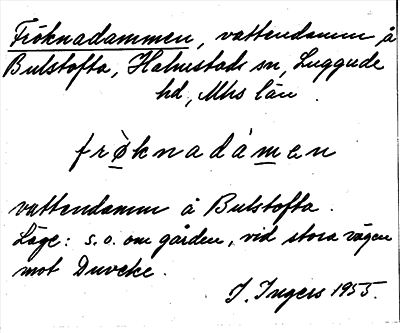 Fröknadammen, vattendamm å
Bulstofta, Halmstads sn, Luggude
hd, Mhs län.
frø̀knadámen
vattendamm å Bulstofta.
Läge: s.o. om gården, vid stora vägen
mot Duveke.
J. Ingers 1955.